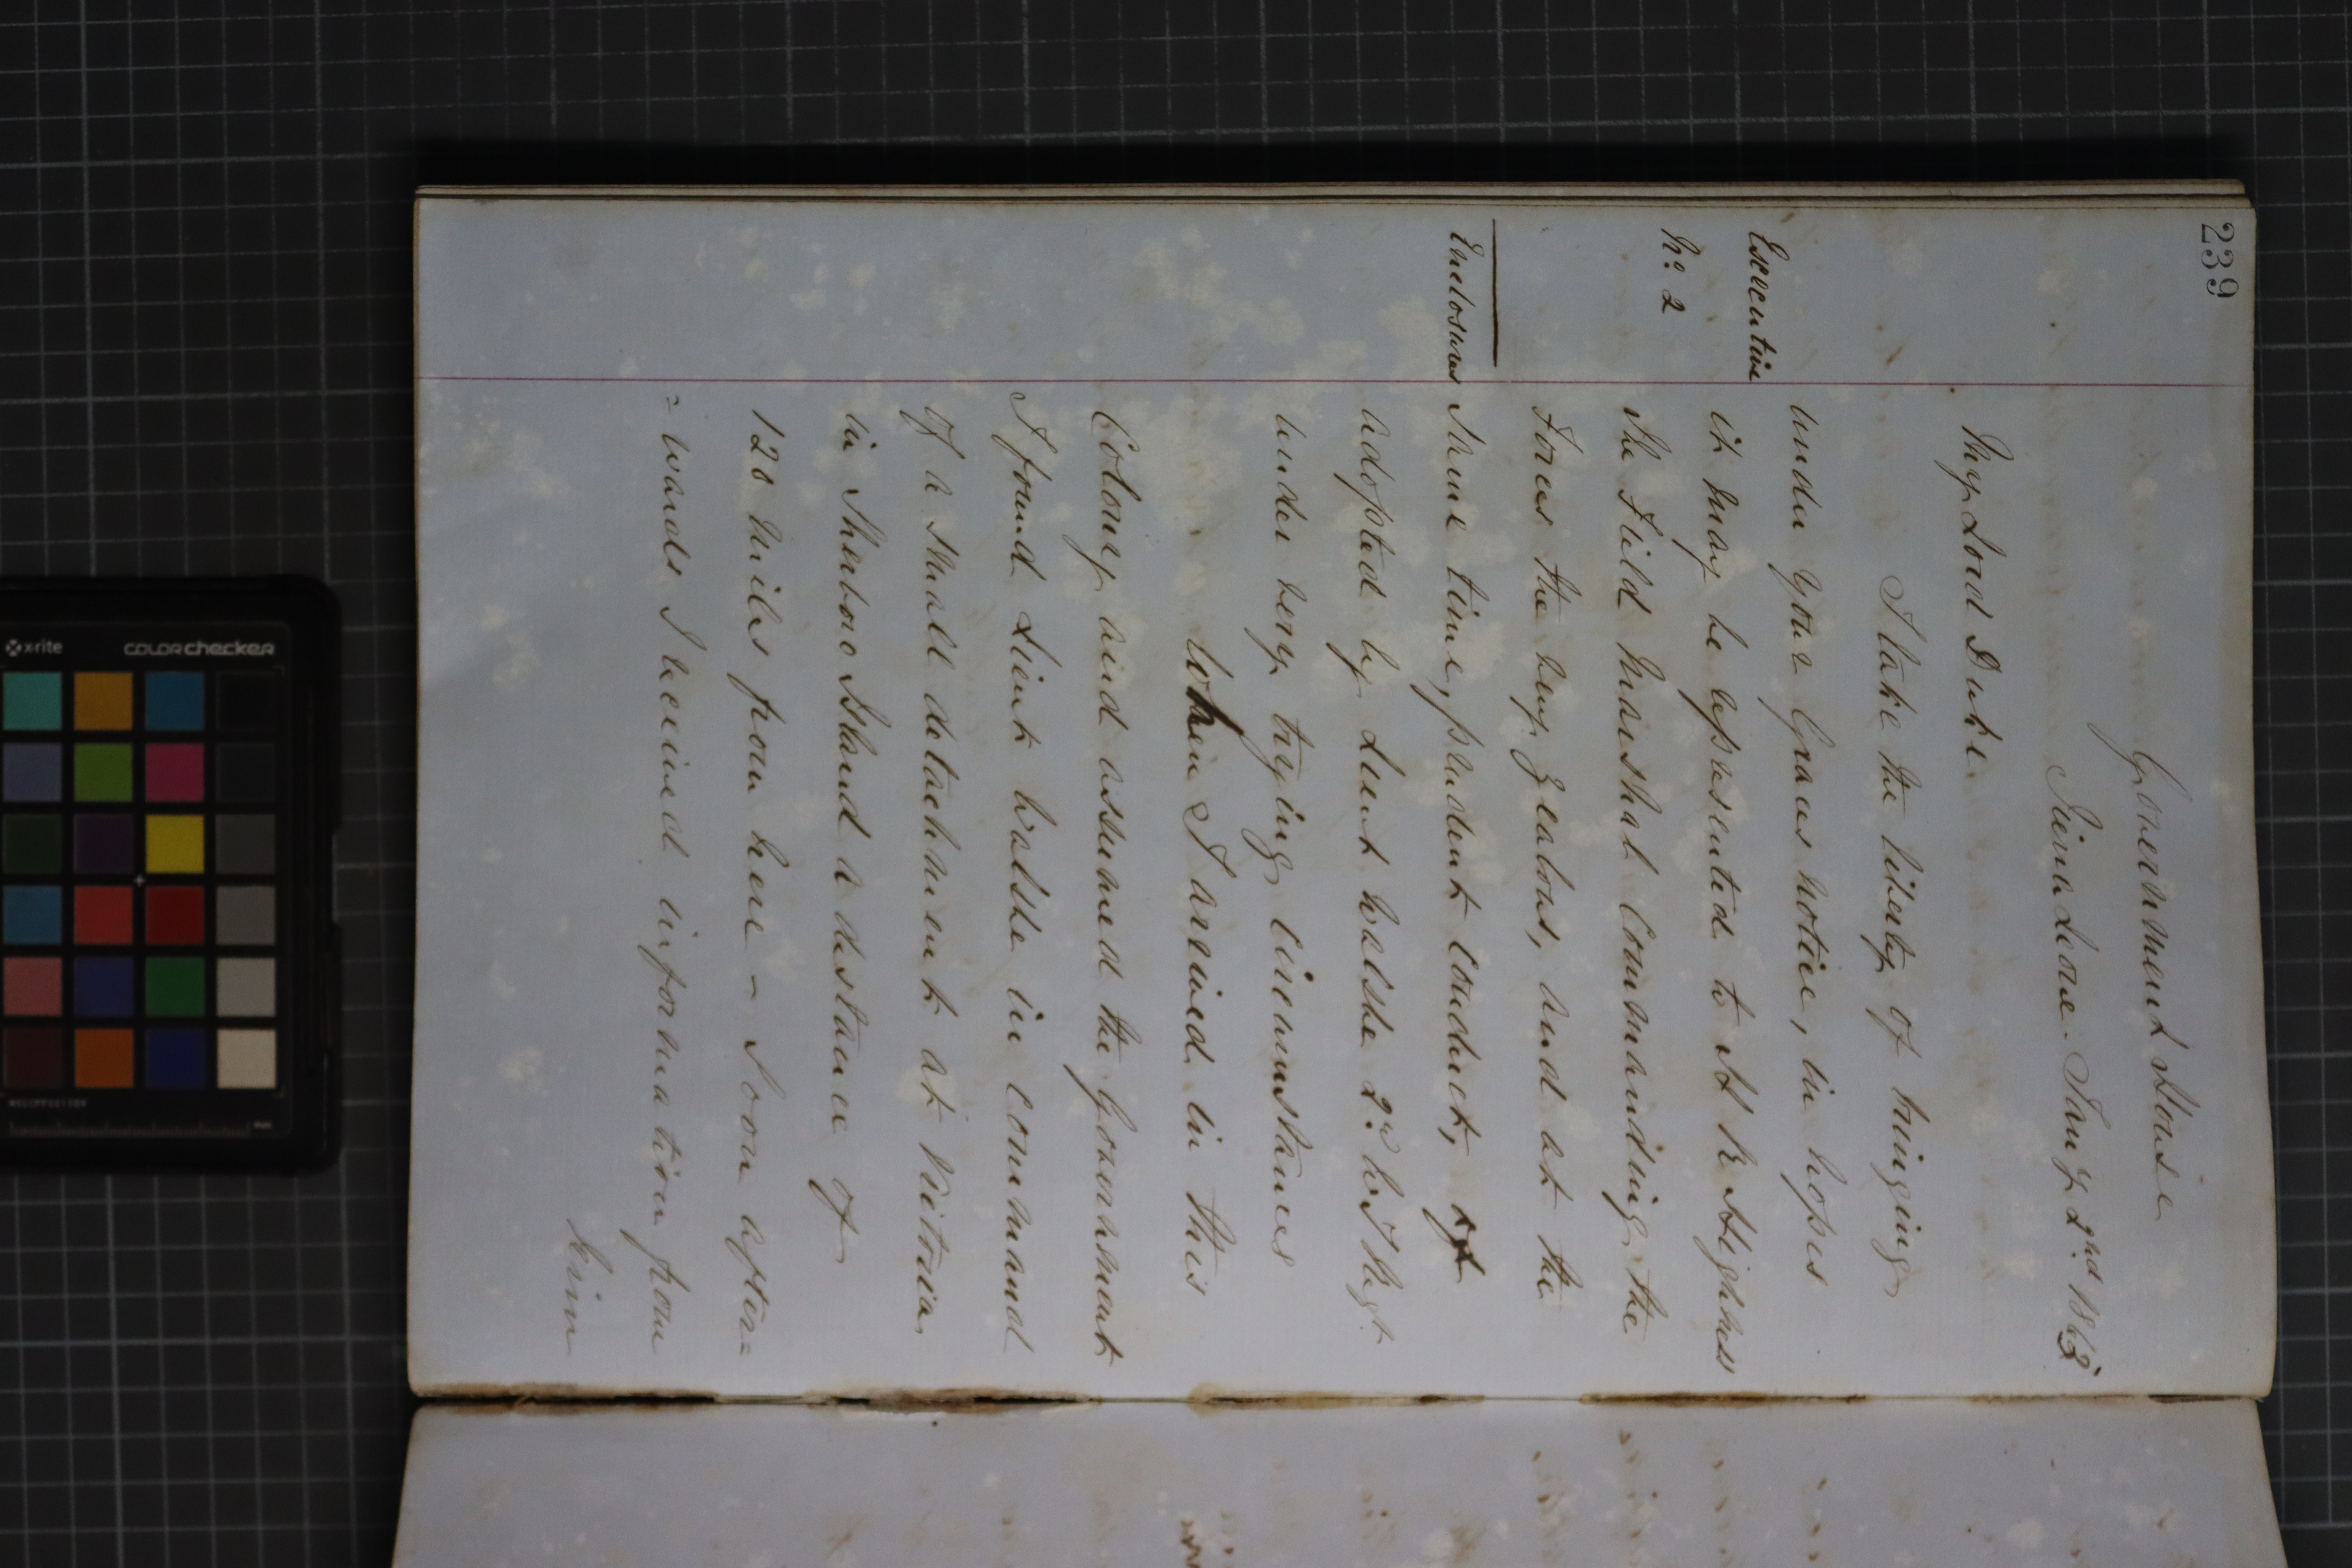 239
Government House
Sierra Leone. Jany 2nd 1863
My Lord Duke.
I take the liberty of bringing
under your Graces notice, in hopes
Executive
it may be represented to H R Highness
No. 2
the Field Marshal Commanding the
Forces the very zealous, and at the
Enclosures
same time, prudent conduct,
adopted by Lieut Walshe 2nd W I Regt
under very trying circumstances
When I arrived in this
Colony and assumed the Government
I found Lieut Walshe in command
of a small detachment at Victoria
in Sherbro Island a distance of
120 miles from here - Soon after=
=wards I received information from
him
x-rite
COLORchecker